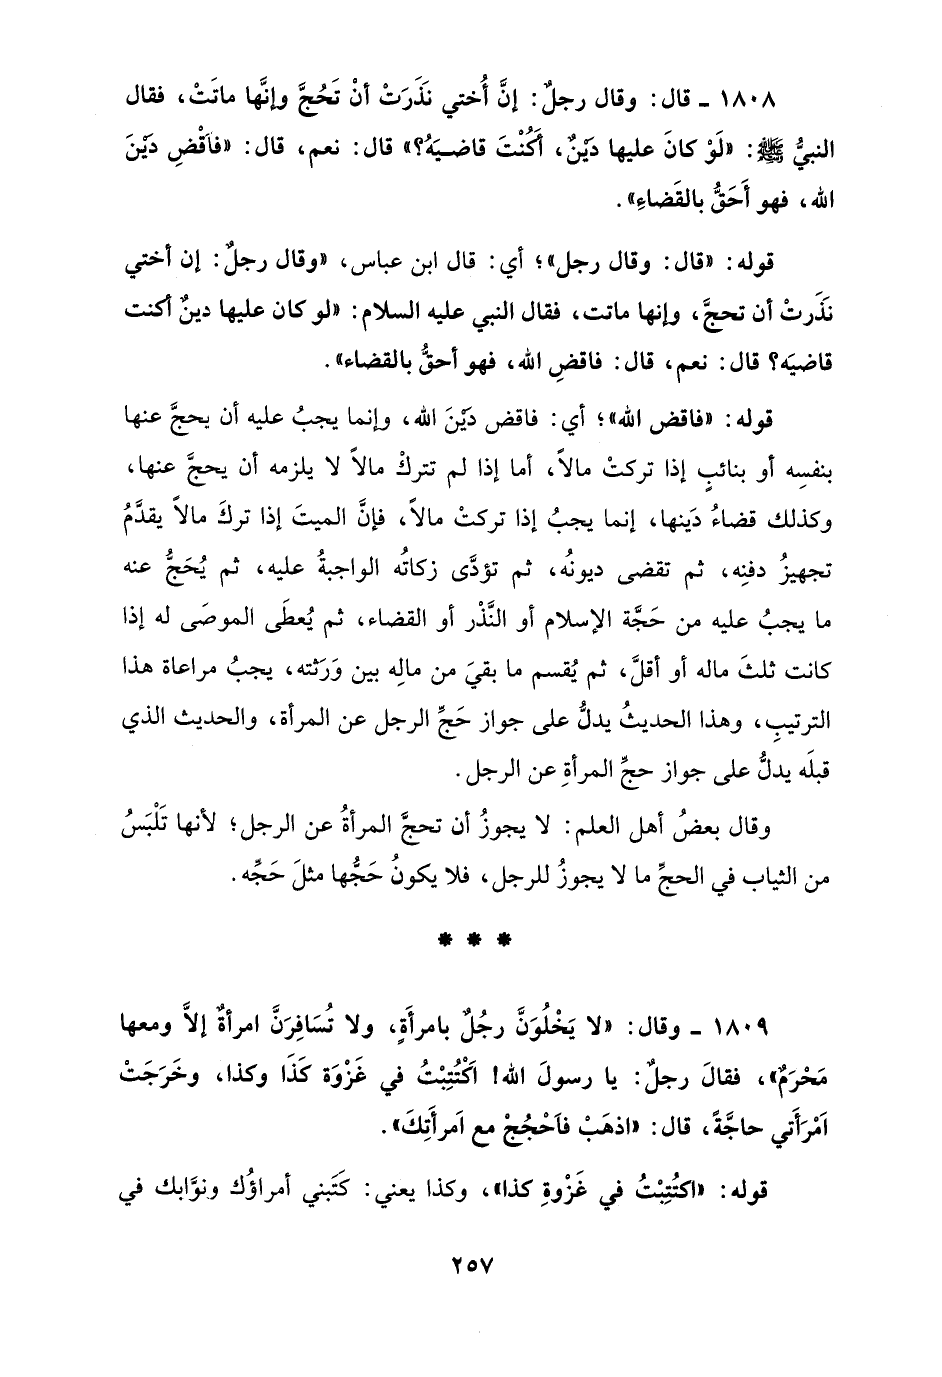 ١٨٠٨ ـ قال: وقال رجلٌ: إنَّ أُختي نَذَرَتْ أنْ تَحُجَّ وإنَّها ماتَتْ، فقال
النبيُّ ﷺ: «لَوْ كانَ عليها دَيْنٌ، أَكُنْتَ قاضيَهُ؟» قال: نعم، قال: «فاَقْضِ دَيْنَ
الله، فهو أَحَقُّ بالقَضاءِ».
قوله: «قال: وقال رجل»؛ أي: قال ابن عباس، «وقال رجلٌ: إن أختي
نَذَرتْ أن تحجَّ، وإنها ماتت، فقال النبي عليه السلام: «لو كان عليها دينٌ أكنت
قاضيَه؟ قال: نعم، قال: فاقضِ الله، فهو أحقُّ بالقضاء».
قوله: «فاقض الله»؛ أي: فاقض دَيْنَ الله، وإنما يجبُ عليه أن يحجَّ عنها
بنفسِه أو بنائبٍ إذا تركتْ مالاً، أما إذا لم تتركْ مالاً لا يلزمه أن يحجَّ عنها،
وكذلك قضاءُ دَينها، إنما يجبُ إذا تركتْ مالاً، فإنَّ الميتَ إذا تركَ مالاً يقدَّمُ
تجهيزُ دفنِه، ثم تقضى ديونُه، ثم تؤدَّى زكاتُه الواجبةُ عليه، ثم يُحَجُّ عنه
ما يجبُ عليه من حَجَّة الإسلام أو النَّذْر أو القضاء، ثم يُعطَى الموصَى له إذا
كانت ثلثَ ماله أو أقلَّ، ثم يُقسم ما بقيَ من مالِه بين وَرَثته، يجبُ مراعاة هذا
الترتيبِ، وهذا الحديثُ يدلُّ على جواز حَجِّ الرجل عن المرأة، والحديث الذي
قبلَه يدلُّ على جواز حجِّ المرأةِ عن الرجل.
وقال بعضُ أهل العلم: لا يجوزُ أن تحجَّ المرأةُ عن الرجل؛ لأنها تَلْبَسُ
من الثياب في الحجِّ ما لا يجوزُ للرجل، فلا يكونُ حَجُّها مثلَ حَجِّه.
* * *
١٨٠٩ ـ وقال: «لا يَخْلُوَنَّ رجُلٌ بامرأَةٍ، ولا تُسَافِرَنَّ امرأةٌ إلاَّ ومعها
مَحْرَمٌ»، فقالَ رجلٌ: يا رسولَ الله! اَكْتُتِبْتُ في غَزْوَة كَذَا وكذا، وخَرَجَتْ
اَمْرَأَتي حاجَّةً، قال: «اذهَبْ فاَحْجُجْ مع اَمرأَتِكَ».
قوله: «اكتُتِبْتُ في غَزْوةِ كذا»، وكذا يعني: كَتَبني أمراؤُك ونوَّابك في
٢٥٧